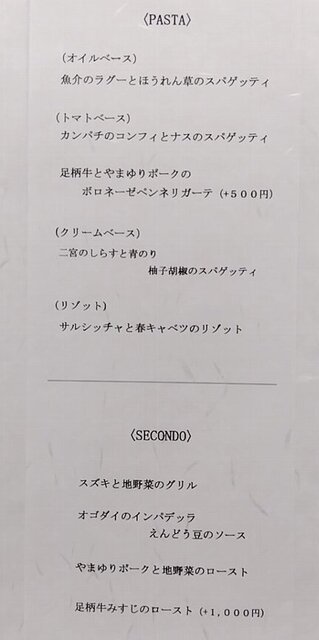 〈PASTA〉
(オイルベース)
魚介のラグーとほうれん草のスパゲッティ
(トマトベース)
カンパチのコンフィとナスのスパゲッティ
足柄牛とやまゆりポークの
ボロネーゼペンネリガーテ (+500円)
(クリームベース)
二宮のしらすと青のり
柚子胡椒のスパゲッティ
(リゾット)
サルシッチャと春キャベツのリゾット
〈SECONDO〉
スズキと地野菜のグリル
オゴダイのインパデッラ
えんどう豆のソース
やまゆりポークと地野菜のロースト
足柄牛みすじのロースト (+1,000円)